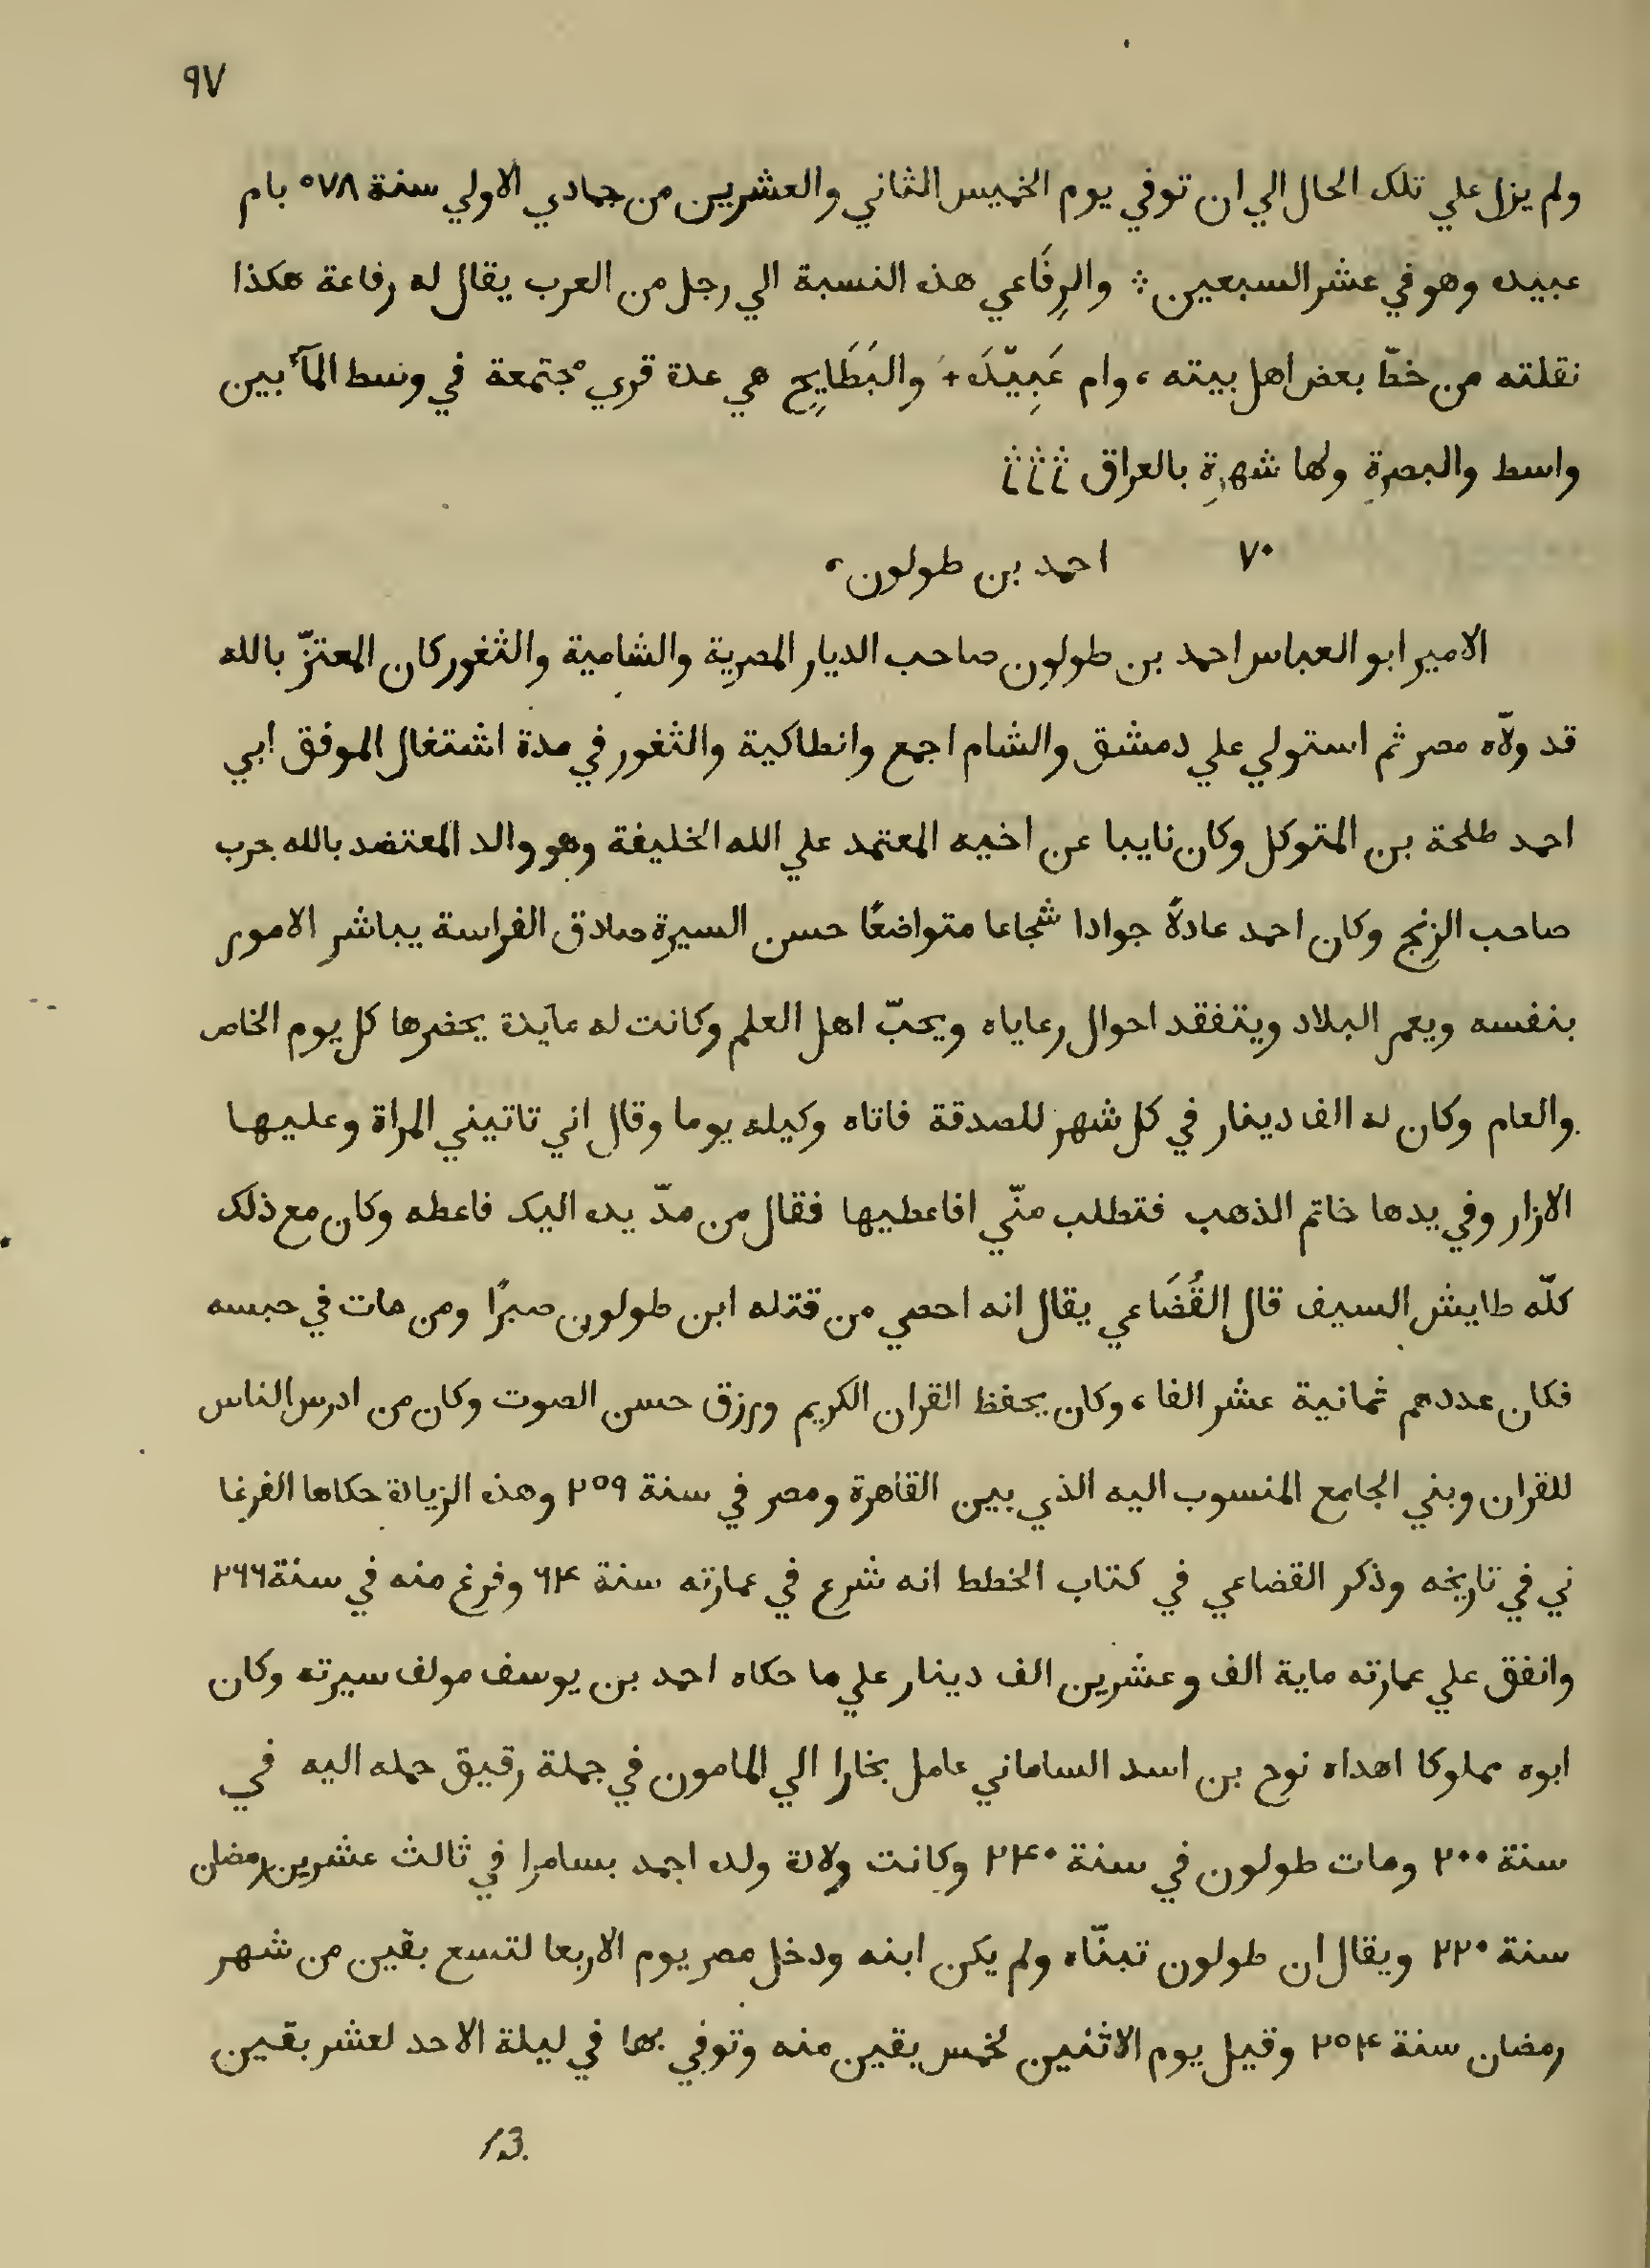 ٩٧
ولم يزل علي تلك الحال الي ان توفي يوم الخميس الثاني والعشرين من جمادي الاولي سنة ٥٧٨ بام
عبيده وهو في عشر السبعين ÷ والرِفَاعي هذه النسبة الي رجل من العرب يقال له رفاعة هكذا
نقلته من خطّ بعض اهل بيته ، وام عَبِيّدَه + والبَطَايِح هي عدة قري مجتمعة في وسط المآء بين
واسط والبصرة ولها شهرة بالعراق
٧٠ احمد بن طولون ،
الامير ابو العباس احمد بن طولون صاحب الديار المصرية والشامية والثغور كان المعتزّ بالله
قد ولّاه مصر ثم استولي علي دمشق والشام اجمع وانطاكية والثغور في مدة اشتغال الموفق ابي
احمد طلحة بن المتوكل وكان نايبا عن اخيه المعتمد علي الله الخليفة وهو والد المعتضد بالله بحرب
صاحب الزنج وكان احمد عادلًا جوادا شجاعا متواضعًا حسن السيرة صادق الفراسة يباشر الامور
بنفسه ويعمر البلاد ويتفقد احوال رعاياه ويحبّ اهل العلم وكانت له مآيدة يحضرها كل يوم الخاص
والعام وكان له الف دينار في كل شهر للصدقة فاتاه وكيله يوما وقال اني تاتيني المراة وعليها
الازار وفي يدها خاتم الذهب فتطلب منّي افاعطيها فقال من مدّ يده اليك فاعطه وكان مع ذلك
كلّه طايش السيف قال القُضَاعي يقال انه احصي من قتله ابن طولون صبرًا ومن مات في حبسه
فكان عددهم ثمانية عشر الفا ، وكان يحفظ القران الكريم ورزق حسن الصوت وكان من ادرس الناس
للقران وبني الجامع المنسوب اليه الذي بين القاهرة ومصر في سنة ٢٥٩ وهذه الزيادة حكاها الفرغا
ني في تاريخه وذكر القضاعي في كتاب الخطط انه شرع في عمارته سنة ٦٤ وفرغ منه في سنة ٢٦٦
وانفق علي عمارته ماية الف وعشرين الف دينار علي ما حكاه احمد بن يوسف مولف سيرته وكان
ابوه مملوكا اهداه نوح بن اسد الساماني عامل بخارا الي المامون في جملة رقيق حمله اليه في
سنة ٢٠٠ ومات طولون في سنة ٢٤٠ وكانت ولادة ولده احمد بسامرا في ثالث عشرين رمضان
سنة ٢٢٠ ويقال ان طولون تبنّاه ولم يكن ابنه ودخل مصر يوم الاربعا لتسع بقين من شهر
رمضان سنة ٢٥٤ وقيل يوم الاثنين لخمس بقين منه وتوفي بها في ليلة الاحد لعشر بقين
13.